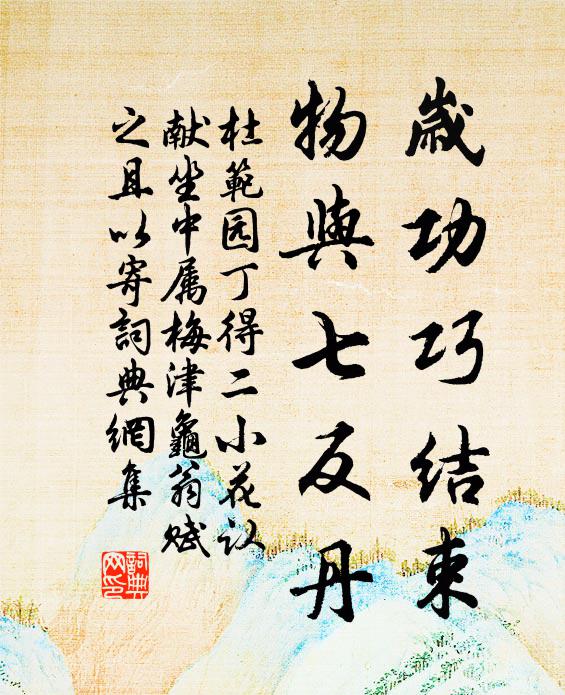 歲功巧結束
物與七反丹
杜範园丁得二小花以
献坐中属梅津龜翁赋
之且以寄詞典網集
詞典網印